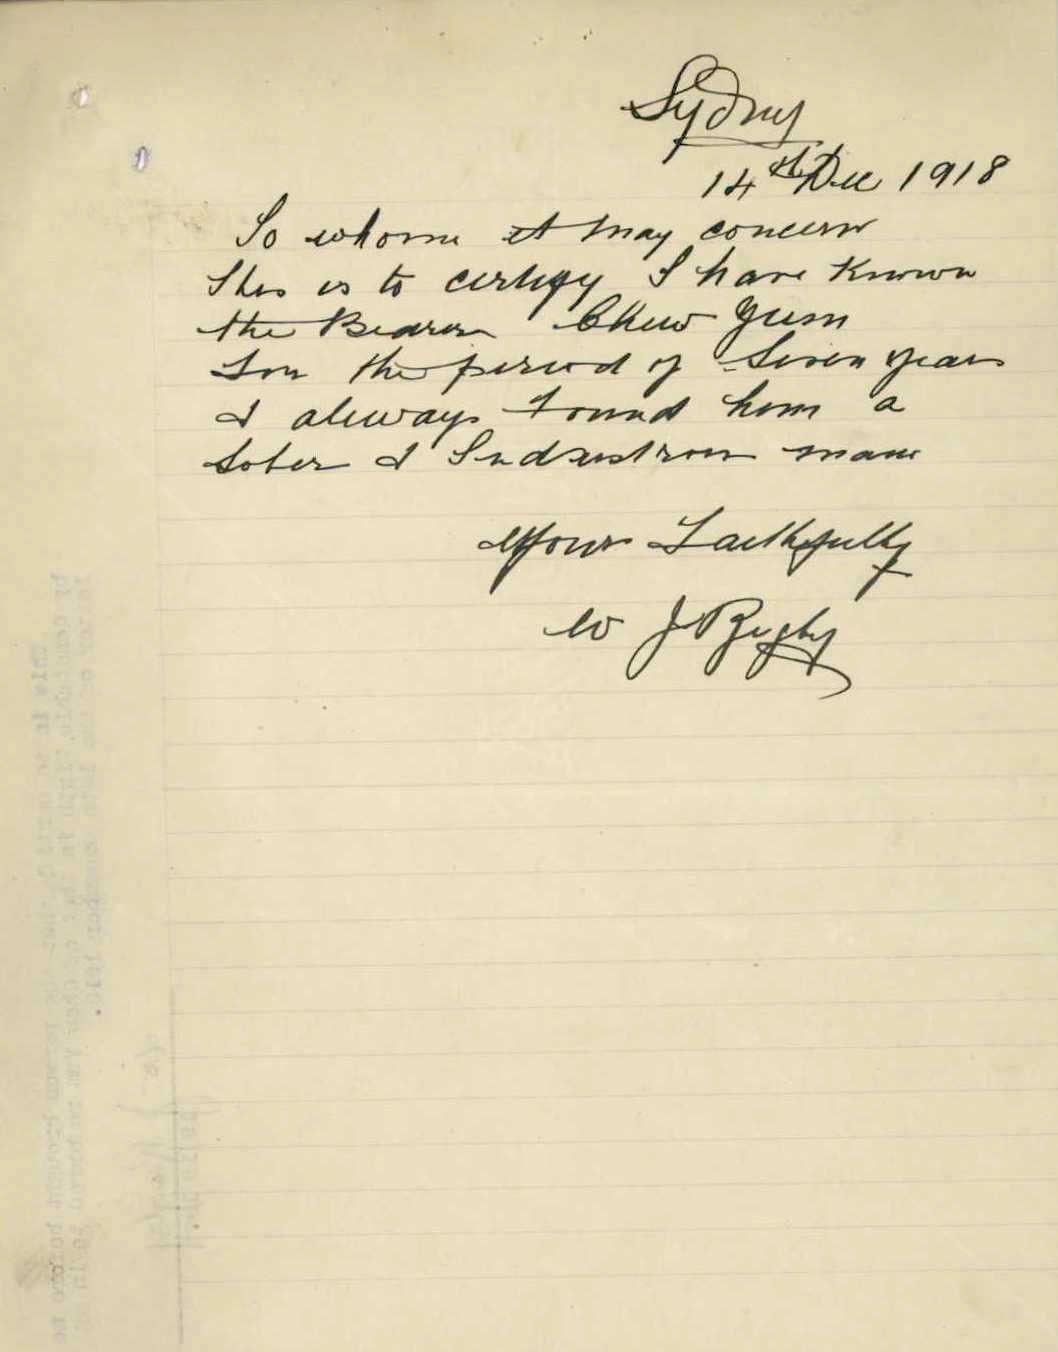 Sydney
14th Dec 1918
To whom it may concern
This is to certify I have Known
the Bearer Chew Yum
for the period of Seven years
& always found him a
sober & Industrous man
Yours Faithfully
W J Bigby